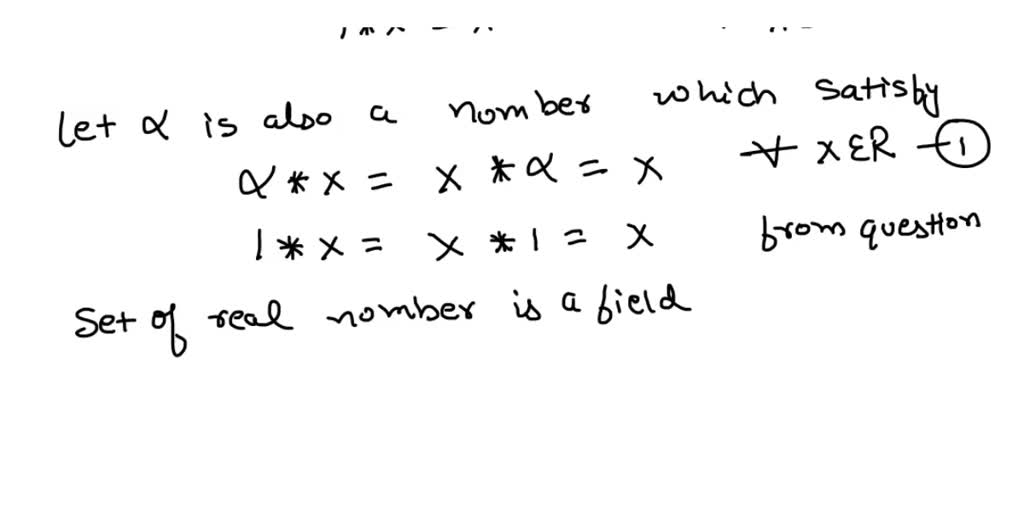 Let α is also a nomber which satisby
α * x = x * α = x ∀ x ε R - ①
1 * x = x * 1 = x brom question
Set of real nomber is a field